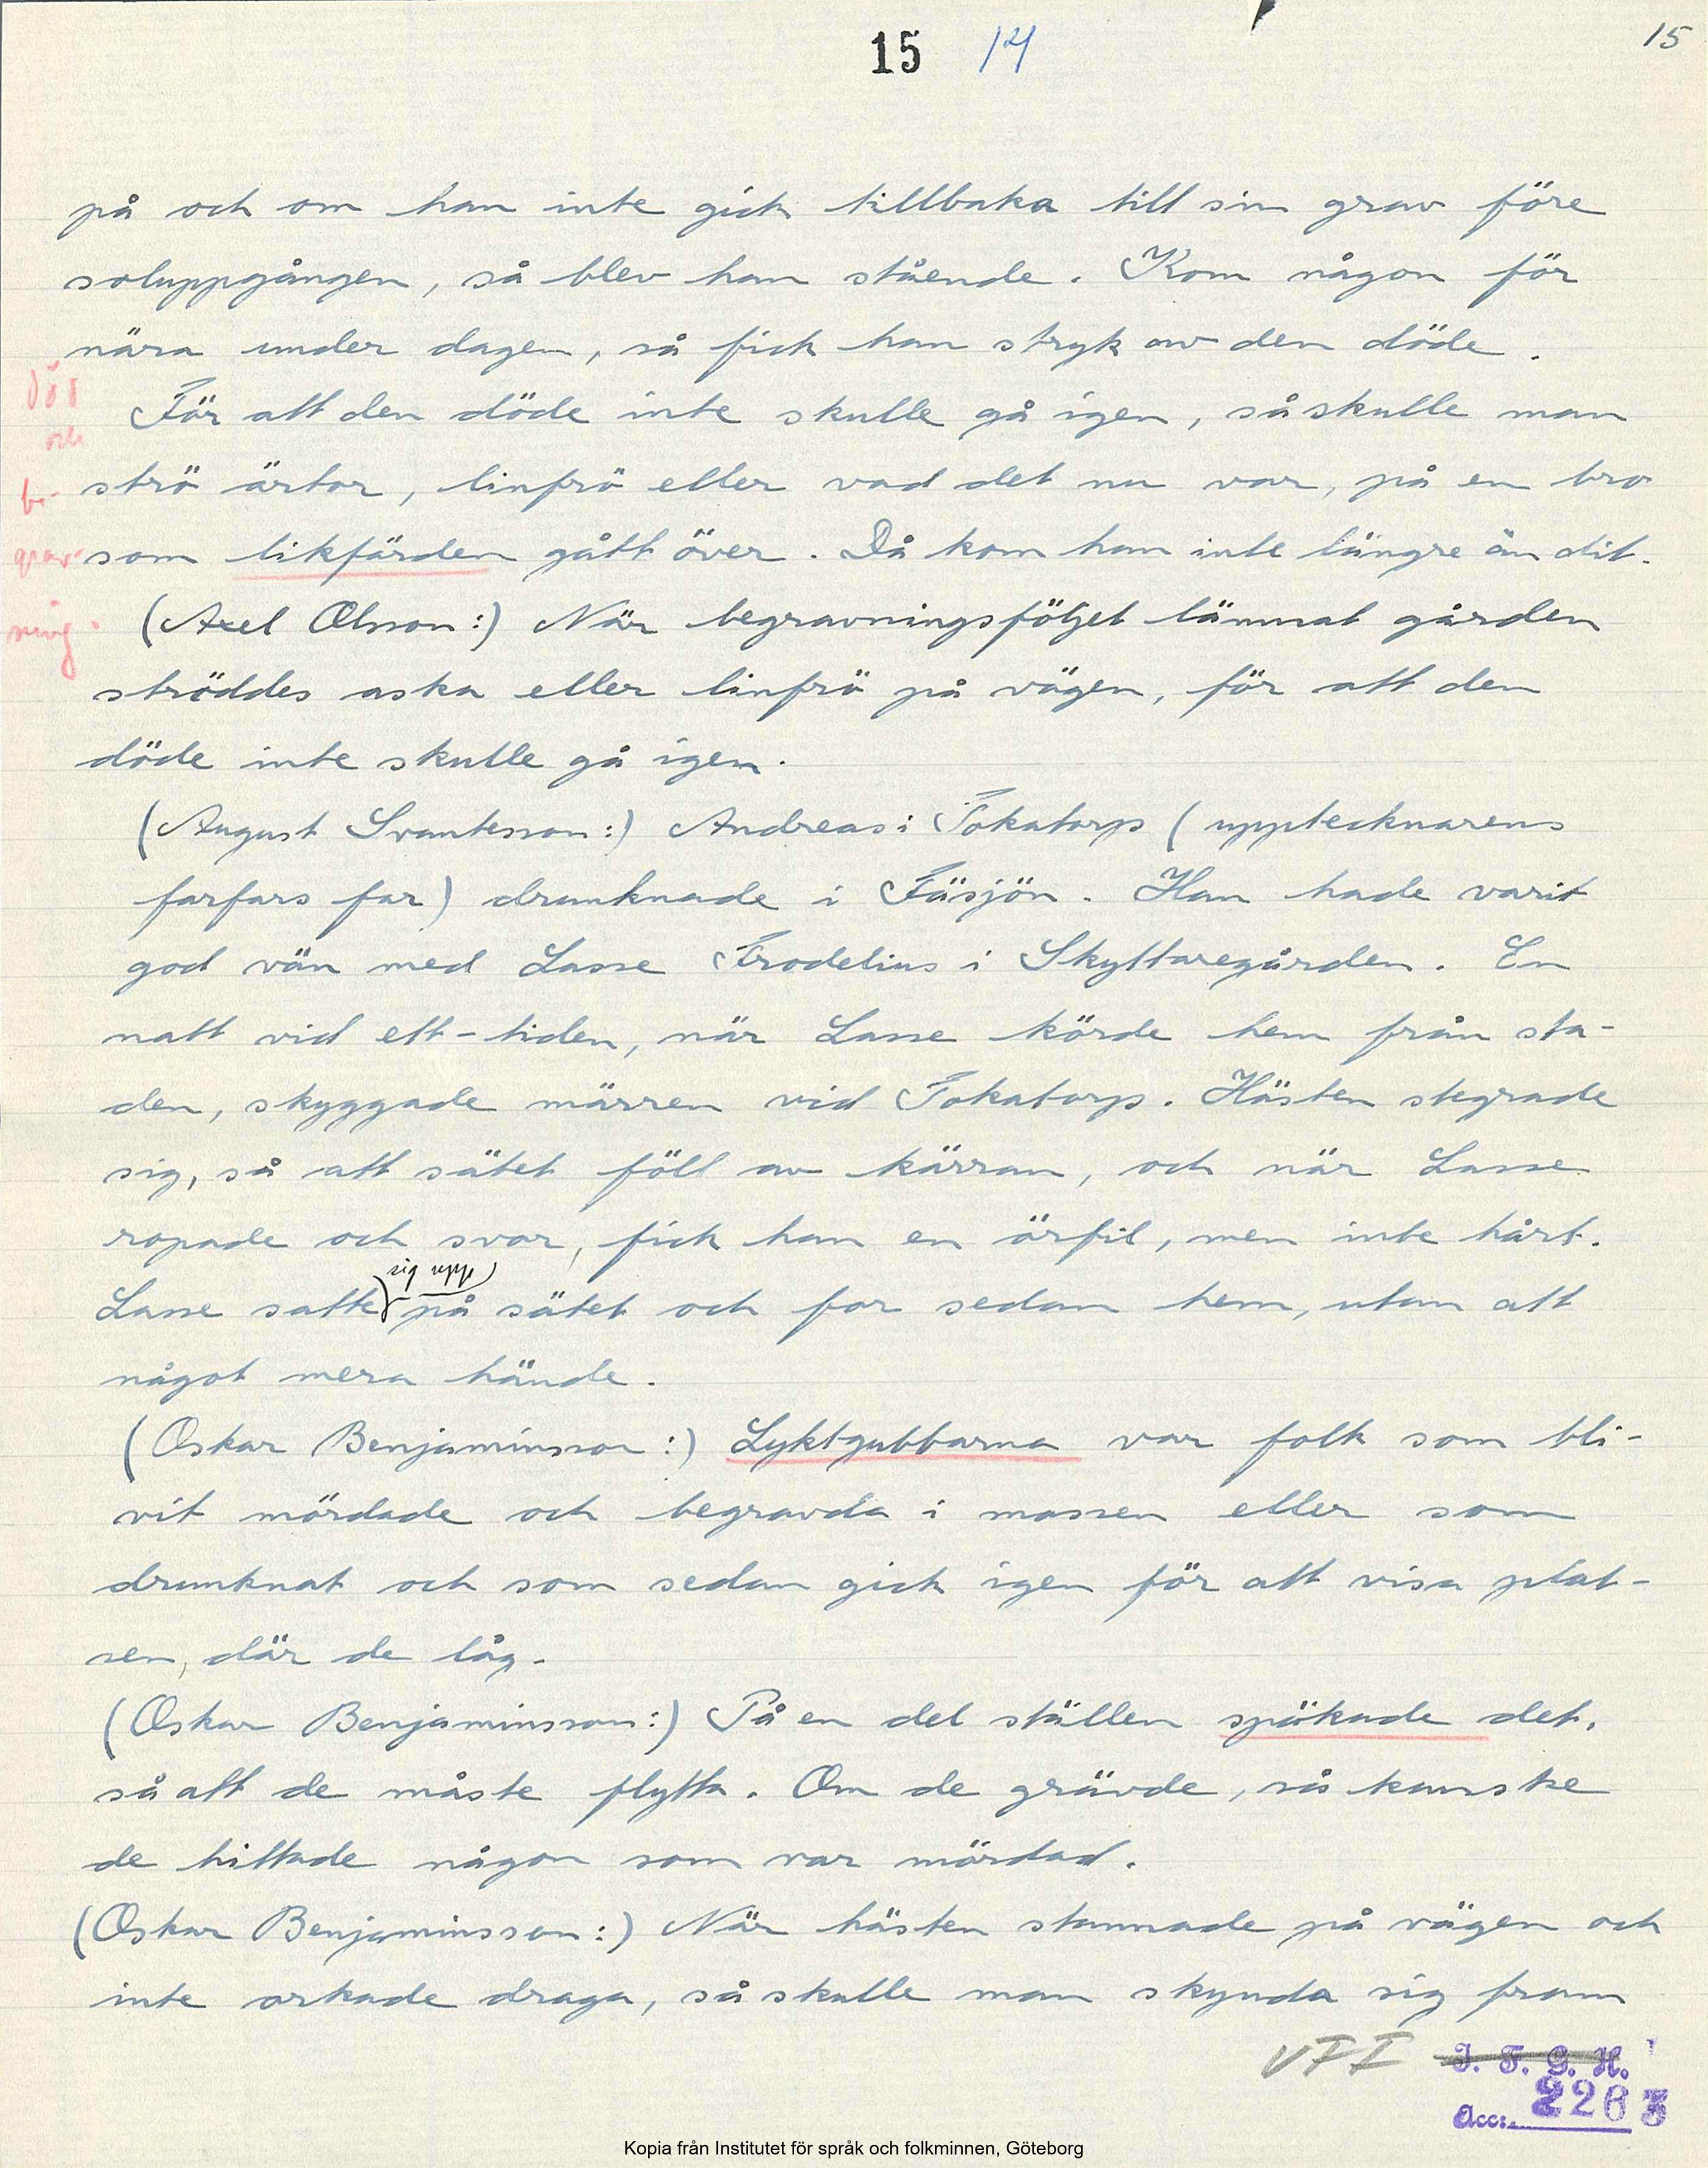 15 14 15
på och om han inte gick tillbaka till sin grav före
soluppgången, så blev han stående. Kom någon för
nära under dagen, så fick han stryk av den döde.
För att den döde inte skulle gå igen, så skulle man
och
strö ärtor, linfrö eller vad det nu var, på en bro
be-
som likfärden gått över. Då kom han inte längre än dit.
grav-
(Axel Olsson:) När begravningsföljet lämnat gården
ning.
ströddes aska eller linfrö på vägen, för att den
döde inte skulle gå igen.
(August Svantesson:) Andreas i Tokatorp (upptecknarens
farfars far) drunknade i Fäsjön. Han hade varit
god vän med Lasse Frodelius i Skyttaregården. En
natt vid ett-tiden, när Lasse körde hem från sta-
den, skyggade märren vid Tokatorp. Hästen stegrade
sig, så att sätet föll av kärran, och när Lasse
ropade och svor, fick han en örfil, men inte hårt.
sig upp
Lasse satte på sätet och for sedan hem, utan att
något mera hände.
(Oskar Benjaminsson:) Lyktgubbarna var folk som bli-
vit mördade och begravda i mossen eller som
drunknat och som sedan gick igen för att visa plat-
sen, där de låg.
(Oskar Benjaminsson:) På en del ställen spökade det,
så att de måste flytta. Om de grävde, så kanske
de hittade någon som var mördad.
(Oskar Benjaminsson:) När hästen stannade på vägen och
inte orkade draga, så skulle man skynda sig fram
VFI I. F. G. H.
Acc. 2263
Kopia från Institutet för språk och folkminnen, Göteborg